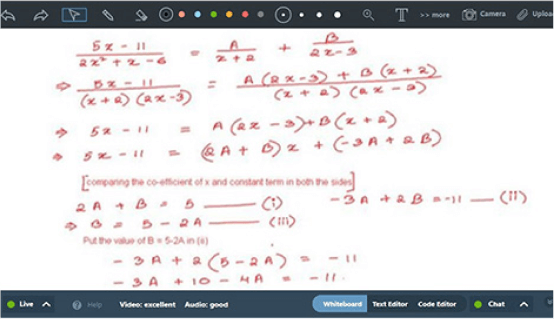 T >> more Camera Uploa
5x - 11 / 2x² + x - 6 = A / x + 2 + B / 2x - 3
⇒ 5x - 11 / (x + 2) (2x - 3) = A (2x - 3) + B (x + 2) / (x + 2) (2x - 3)
⇒ 5x - 11 = A (2x - 3) + B (x + 2)
⇒ 5x - 11 = (2A + B) x + (-3A + 2B)
[comparing the co-efficient of x and constant term in both the sides]
2A + B = 5 —— (i) -3A + 2B = -11 —— (ii)
⇒ B = 5 - 2A —— (iii)
Put the value of B = 5-2A in (ii)
- 3A + 2 (5 - 2A) = - 11
- 3A + 10 - 4A = - 11.
Live Help Video: excellent Audio: good Whiteboard Text Editor Code Editor Chat